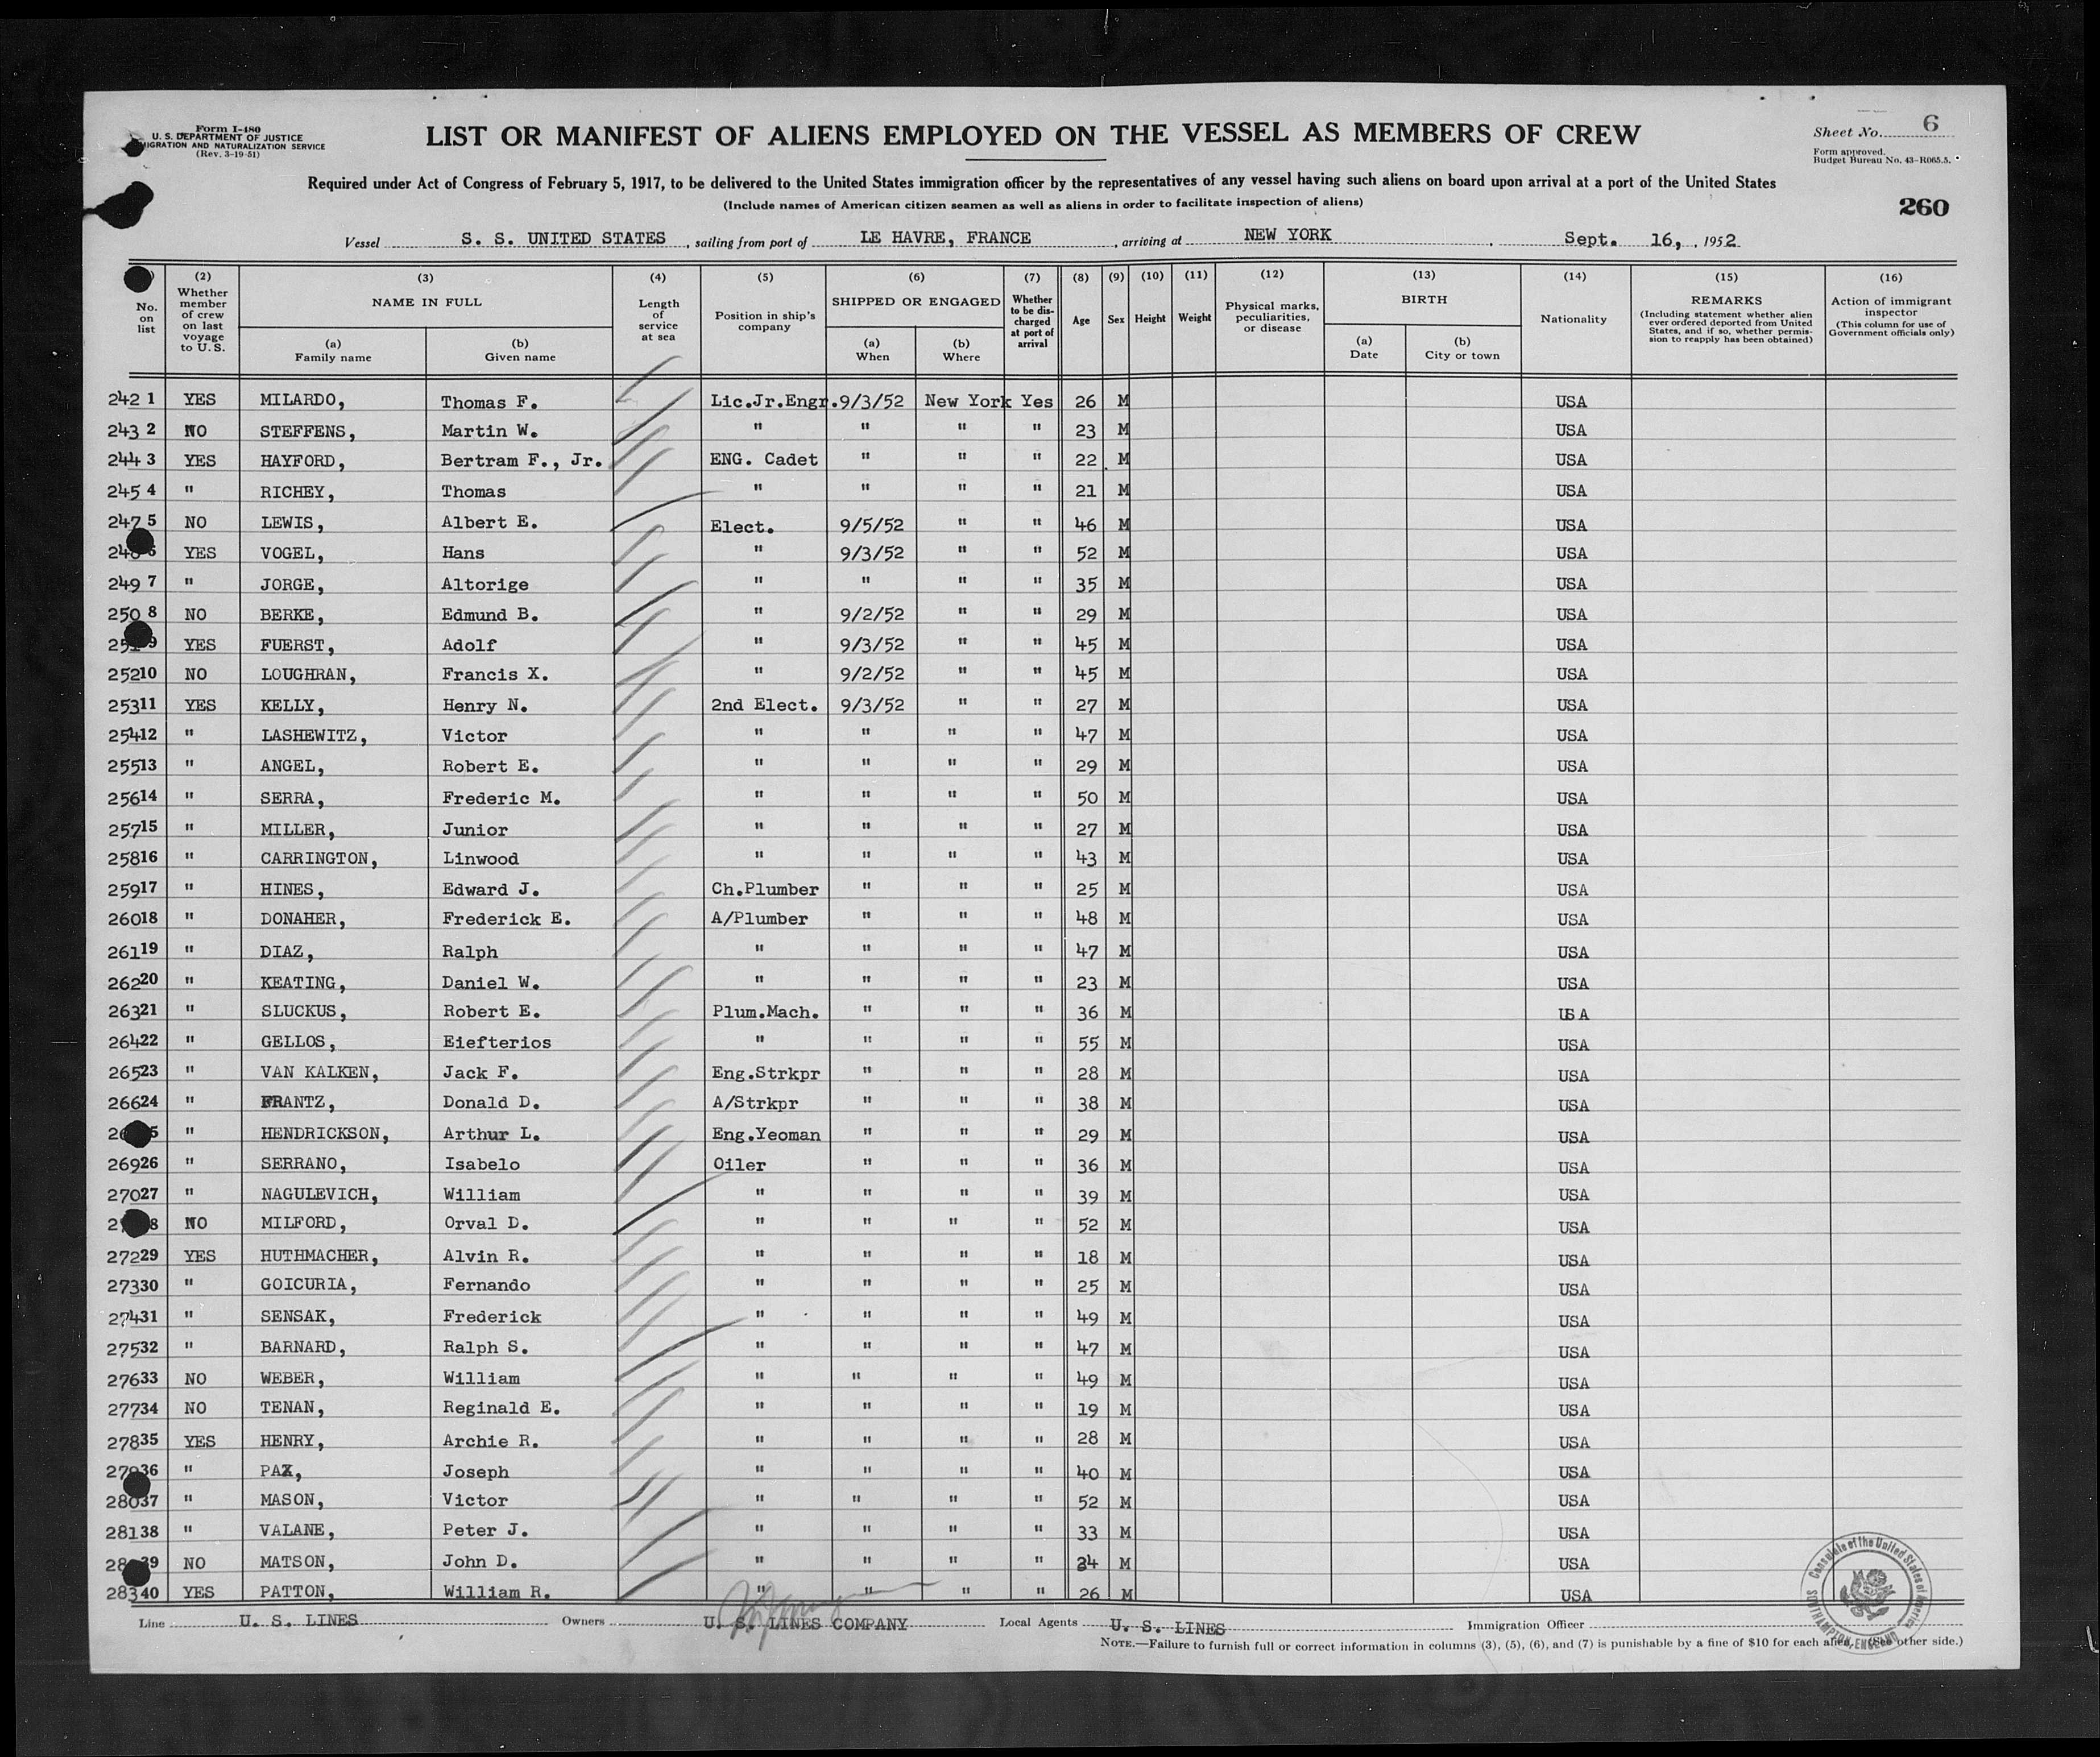 Form I-480
U. S. DEPARTMENT OF JUSTICE
IGRATION AND NATURALIZATION SERVICE
(Rev. 3-19-51)
LIST OR MANIFEST OF ALIENS EMPLOYED ON THE VESSEL AS MEMBERS OF CREW
Sheet No. 6
Form approved.
Budget Bureau No. 43-R065.5.
Required under Act of Congress of February 5, 1917, to be delivered to the United States immigration officer by the representatives of any vessel having such aliens on board upon arrival at a port of the United States
(Include names of American citizen seamen as well as aliens in order to facilitate inspection of aliens)
260
Vessel S. S. UNITED STATES, sailing from port of LE HAVRE, FRANCE, arriving at NEW YORK, Sept. 16, , 1952
No. on list
(2) Whether member of crew on last voyage to U. S.
(3) NAME IN FULL
(a) Family name
(b) Given name
(4) Length of service at sea
(5) Position in ship's company
(6) SHIPPED OR ENGAGED
(a) When
(b) Where
(7) Whether to be discharged at port of arrival
(8) Age
(9) Sex
(10) Height
(11) Weight
(12) Physical marks, peculiarities, or disease
(13) BIRTH
(a) Date
(b) City or town
(14) Nationality
(15) REMARKS
(Including statement whether alien ever ordered deported from United States, and if so, whether permission to reapply has been obtained)
(16) Action of immigrant inspector
(This column for use of Government officials only)
242 1 YES MILARDO, Thomas F. Lic.Jr.Engr. 9/3/52 New York Yes 26 M USA
243 2 NO STEFFENS, Martin W. " " " " 23 M USA
244 3 YES HAYFORD, Bertram F., Jr. ENG. Cadet " " " 22 M USA
245 4 " RICHEY, Thomas " " " " 21 M USA
247 5 NO LEWIS, Albert E. Elect. 9/5/52 " " 46 M USA
248 6 YES VOGEL, Hans " 9/3/52 " " 52 M USA
249 7 " JORGE, Altorige " " " " 35 M USA
250 8 NO BERKE, Edmund B. " 9/2/52 " " 29 M USA
251 9 YES FUERST, Adolf " 9/3/52 " " 45 M USA
252 10 NO LOUGHRAN, Francis X. " 9/2/52 " " 45 M USA
253 11 YES KELLY, Henry N. 2nd Elect. 9/3/52 " " 27 M USA
254 12 " LASHEWITZ, Victor " " " " 47 M USA
255 13 " ANGEL, Robert E. " " " " 29 M USA
256 14 " SERRA, Frederic M. " " " " 50 M USA
257 15 " MILLER, Junior " " " " 27 M USA
258 16 " CARRINGTON, Linwood " " " " 43 M USA
259 17 " HINES, Edward J. Ch.Plumber " " " 25 M USA
260 18 " DONAHER, Frederick E. A/Plumber " " " 48 M USA
261 19 " DIAZ, Ralph " " " " 47 M USA
262 20 " KEATING, Daniel W. " " " " 23 M USA
263 21 " SLUCKUS, Robert E. Plum.Mach. " " " 36 M USA
264 22 " GELLOS, Eiefterios " " " " 55 M USA
265 23 " VAN KALKEN, Jack F. Eng.Strkpr " " " 28 M USA
266 24 " FRANTZ, Donald D. A/Strkpr " " " 38 M USA
5 " HENDRICKSON, Arthur L. Eng.Yeoman " " " 29 M USA
269 26 " SERRANO, Isabelo Oiler " " " 36 M USA
270 27 " NAGULEVICH, William " " " " 39 M USA
8 NO MILFORD, Orval D. " " " " 52 M USA
272 29 YES HUTHMACHER, Alvin R. " " " " 18 M USA
273 30 " GOICURIA, Fernando " " " " 25 M USA
274 31 " SENSAK, Frederick " " " " 49 M USA
275 32 " BARNARD, Ralph S. " " " " 47 M USA
276 33 NO WEBER, William " " " " 49 M USA
277 34 NO TENAN, Reginald E. " " " " 19 M USA
278 35 YES HENRY, Archie R. " " " " 28 M USA
279 36 " PAX, Joseph " " " " 40 M USA
280 37 " MASON, Victor " " " " 52 M USA
281 38 " VALANE, Peter J. " " " " 33 M USA
39 NO MATSON, John D. " " " " 34 M USA
283 40 YES PATTON, William R. " " " " 26 M USA
Line U. S. LINES Owners U. S. LINES COMPANY Local Agents U. S. LINES Immigration Officer
NOTE.—Failure to furnish full or correct information in columns (3), (5), (6), and (7) is punishable by a fine of $10 for each alien. (See other side.)
Consulate of the United States of America
SOUTHAMPTON, ENGLAND